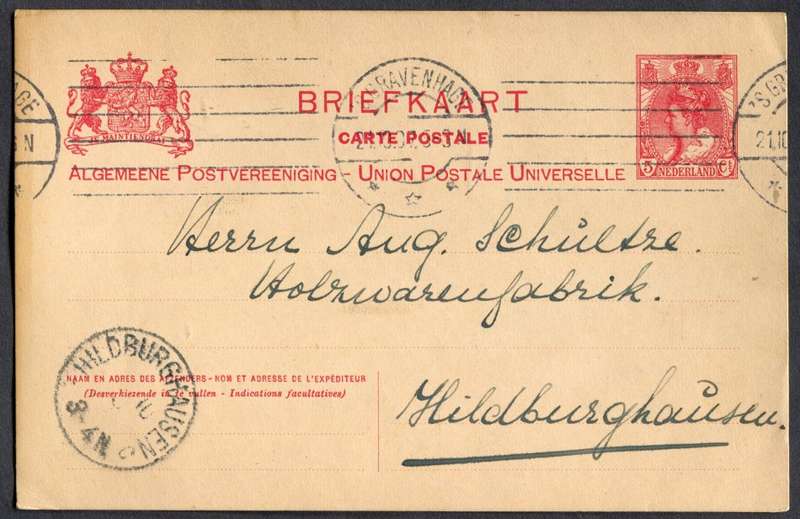 JE MAINTIENDRAI
BRIEFKAART
CARTE POSTALE
ALGEMEENE POSTVEREENIGING - UNION POSTALE UNIVERSELLE
5 NEDERLAND Ct
'S GRAVENHAGE
Herrn Aug. Schültze.
Holzwarenfabrik.
Hildburghausen.
HILDBURGHAUSEN
3-4N
NAAM EN ADRES DES AFZENDERS - NOM ET ADRESSE DE L'EXPÉDITEUR
(Desverkiezende in te vullen - Indications facultatives)